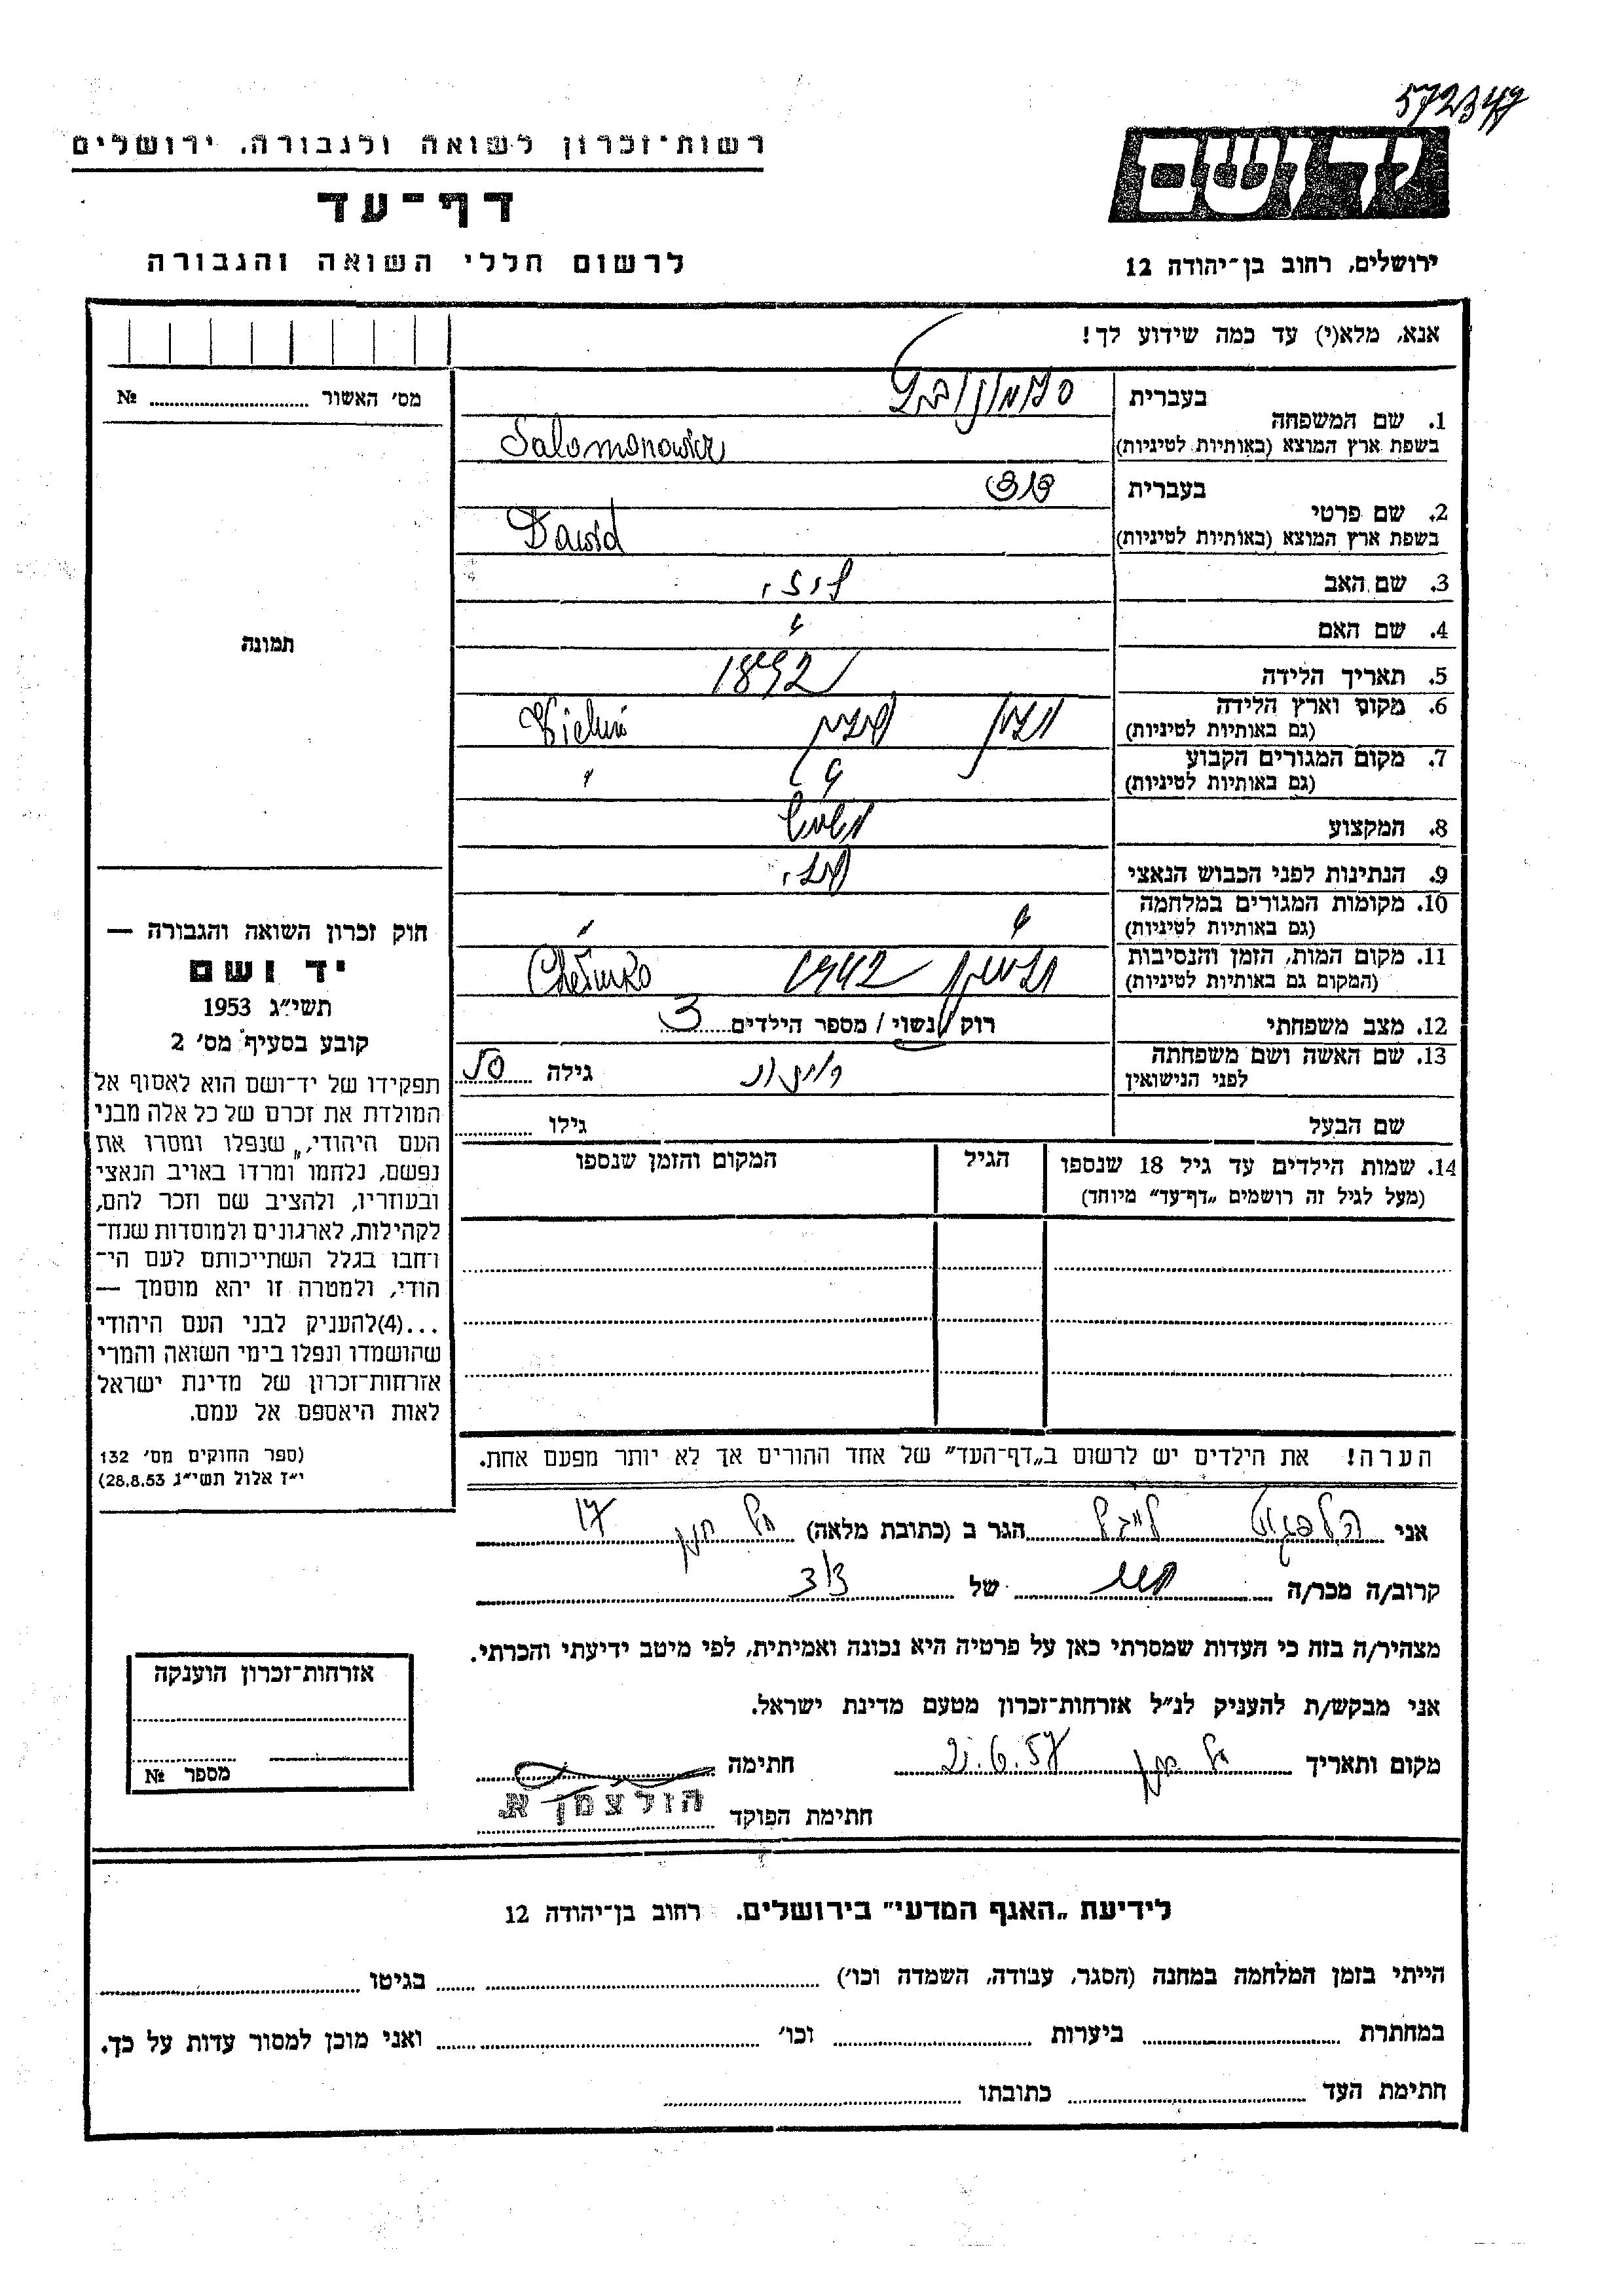 572347
רשות־זכרון לשואה ולגבורה. ירושלים
יד ושם
דף־עד
לרשום חללי השואה והגבורה
ירושלים, רחוב בן־יהודה 12
אנא, מלא(י) עד כמה שידוע לך!
מס׳ האשור № 
תמונה
בעברית
1. שם המשפחה
בשפת ארץ המוצא (באותיות לטיניות) Salomonowicz
בעברית דוד
2. שם פרטי
בשפת ארץ המוצא (באותיות לטיניות) Dawid
3. שם האב
4. שם האם
5. תאריך הלידה 1892
6. מקום וארץ הלידה
(גם באותיות לטיניות) וילון פולין Wieluń
7. מקום המגורים הקבוע
(גם באותיות לטיניות) " "
8. המקצוע
9. הנתינות לפני הכבוש הנאצי פולני
10. מקומות המגורים במלחמה
(גם באותיות לטיניות) " "
11. מקום המות, הזמן והנסיבות
(המקום גם באותיות לטיניות) 1942 Chełmno
12. מצב משפחתי רוק / נשוי / מספר הילדים 3
13. שם האשה ושם משפחתה
לפני הנישואין גילה 50
שם הבעל גילו
14. שמות הילדים עד גיל 18 שנספו הגיל המקום והזמן שנספו
(מעל לגיל זה רושמים „דף־עד” מיוחד)
הערה! את הילדים יש לרשום ב„דף־העד” של אחד ההורים אך לא יותר מפעם אחת.
חוק זכרון השואה והגבורה —
יד ושם
תשי״ג 1953
קובע בסעיף מס׳ 2
תפקידו של יד־ושם הוא לאסוף אל
המולדת את זכרם של כל אלה מבני
העם היהודי, שנפלו ומסרו את
נפשם, נלחמו ומרדו באויב הנאצי
ובעוזריו, ולהציב שם וזכר להם,
לקהילות, לארגונים ולמוסדות שנח־
רחבו בגלל השתייכותם לעם הי־
הודי, ולמטרה זו יהא מוסמך —
...(4)להעניק לבני העם היהודי
שהושמדו ונפלו בימי השואה והמרי
אזרחות־זכרון של מדינת ישראל
לאות היאספם אל עמם.
(ספר החוקים מס׳ 132
י״ז אלול תשי״ג 28.8.53)
אני הגר ב (כתובת מלאה)
קרוב/ה מכר/ה של דוד
מצהיר/ה בזה כי העדות שמסרתי כאן על פרטיה היא נכונה ואמיתית, לפי מיטב ידיעתי והכרתי.
אני מבקש/ת להעניק לנ״ל אזרחות־זכרון מטעם מדינת ישראל.
מקום ותאריך 21.6.57 חתימה
חתימת הפוקד הולצמן א.
אזרחות־זכרון הוענקה
מספר №
לידיעת „האגף המדעי” בירושלים. רחוב בן־יהודה 12
הייתי בזמן המלחמה במחנה (הסגר, עבודה, השמדה וכו׳) בגיטו
במחתרת ביערות וכו׳ ואני מוכן למסור עדות על כך.
חתימת העד כתובתו